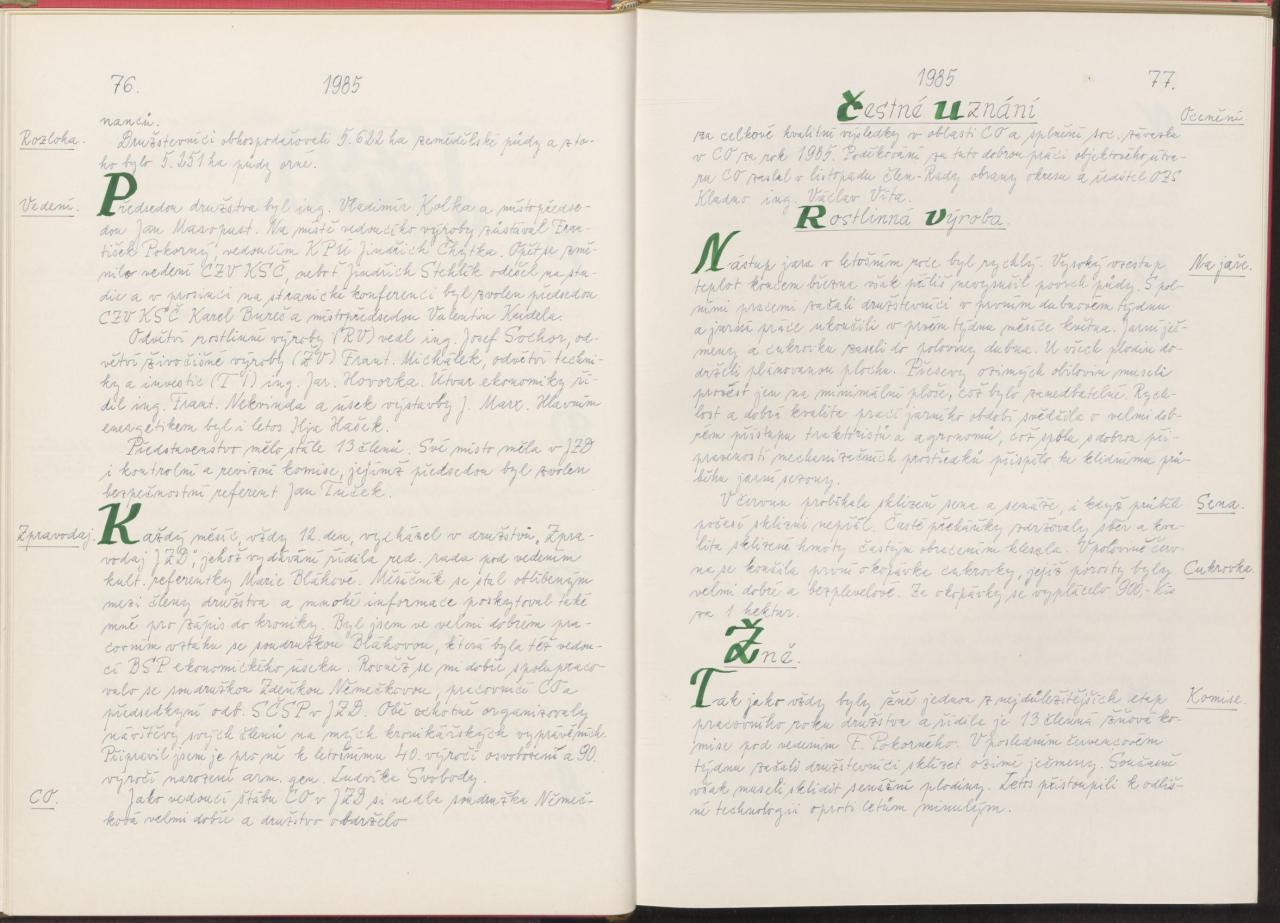 76.
1985
nanců.
Rozloha.
Družstevníci obhospodařovali 5.622 ha zemědělské půdy a z to-
ho bylo 5.251 ha půdy orné.
Vedení.
Předsedou družstva byl ing. Vladimír Kolka a místopředse-
dou Jan Masopust. Na místě vedoucího výroby zůstával Fran-
tišek Pokorný, vedoucím KPÚ Jindřich Chytka. Opět se změ-
nilo vedení CZV KSČ, neboť Jindřich Stehlík odešel na stu-
die a v prosinci na stranické konferenci byl zvolen předsedou
CZV KSČ Karel Bureš a místopředsedou Valentin Kudela.
Odvětví rostlinné výroby (RV) vedl ing. Josef Sochor, od-
větví živočišné výroby (ŽV) Frant. Michálek, odvětví techni-
ky a investic (TI) ing. Jar. Hovorka. Útvar ekonomiky ří-
dil ing. Frant. Nekvinda a úsek výstavby J. Marx. Hlavním
energetikem byl i letos Ilja Hašek.
Představenstvo mělo stále 13 členů. Své místo měla v JZD
i kontrolní a revizní komise, jejímž předsedou byl zvolen
bezpečnostní referent Jan Tuček.
Zpravodaj.
Každý měsíc, vždy 12. den, vycházel v družstvu „Zpra-
vodaj JZD", jehož vydávání řídila red. rada pod vedením
kult. referentky Marie Bláhové. Měsíčník se stal oblíbeným
mezi členy družstva a mnohé informace poskytoval také
mně pro zápis do kroniky. Byl jsem ve velmi dobrém pra-
covním vztahu se soudružkou Bláhovou, která byla též vedou-
cí BSP ekonomického úseku. Rovněž se mi dobře spolupraco-
valo se soudružkou Zdeňkou Němečkovou, pracovnicí CO a
předsedkyní odb. SČSP v JZD. Obě ochotně organizovaly
návštěvy svých členů na mých kronikářských vyprávěních.
Připravil jsem je pro ně k letošnímu 40. výročí osvobození a 90.
výročí narození arm. gen. Ludvíka Svobody.
CO.
Jako vedoucí štábu CO v JZD si vedla soudružka Němeč-
ková velmi dobře a družstvo obdrželo
1985
77.
Čestné uznání
Ocenění.
za celkové kvalitní výsledky v oblasti CO a splnění soc. závazku
v CO za rok 1985. Poděkování za tuto dobrou práci objektového útva-
ru CO zaslal v listopadu člen Rady obrany okresu a ředitel OZS
Kladno ing. Václav Víta.
Rostlinná výroba.
Na jaře.
Nástup jara v letošním roce byl rychlý. Vysoký vzestup
teplot koncem března však příliš nevysušil povrch půdy. S pol-
ními pracemi začali družstevníci v prvním dubnovém týdnu
a jarní práce ukončili v prvém týdnu měsíce května. Jarní ječ-
meny a cukrovku zaseli do poloviny dubna. U všech plodin do-
drželi plánovanou plochu. Přísevy ozimých obilovin museli
provést jen na minimální ploše, což bylo zanedbatelné. Rych-
lost a dobrá kvalita prací jarního období svědčila o velmi dob-
rém přístupu traktoristů a agronomů, což spolu s dobrou při-
praveností mechanizačních prostředků přispělo ke klidnému prů-
běhu jarní sezony.
Sena.
V červnu probíhala sklizeň sena a senáže, i když průběh
počasí sklizni nepřál. Časté přeháňky zdržovaly sběr a kva-
lita sklizené hmoty častým obracením klesala. V polovině červ-
Cukrovka.
na se končila první okopávka cukrovky, jejíž porosty byly
velmi dobré a bezplevelové. Za okopávky se vyplácelo 90,- Kčs
za 1 hektar.
Žně.
Komise.
Tak jako vždy byly žně jednou z nejdůležitějších etap
pracovního roku družstva a řídila je 13 členná žňová ko-
mise pod vedením F. Pokorného. V posledním červencovém
týdnu začali družstevníci sklízet ozimé ječmeny. Současně
však museli sklidit senážní plodiny. Letos přistoupili k odliš-
né technologii oproti letům minulým.